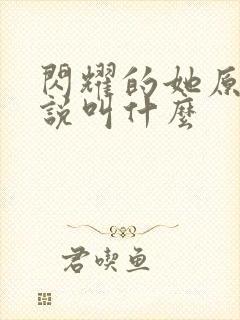 閃耀的她原
說叫什麼
君喫魚